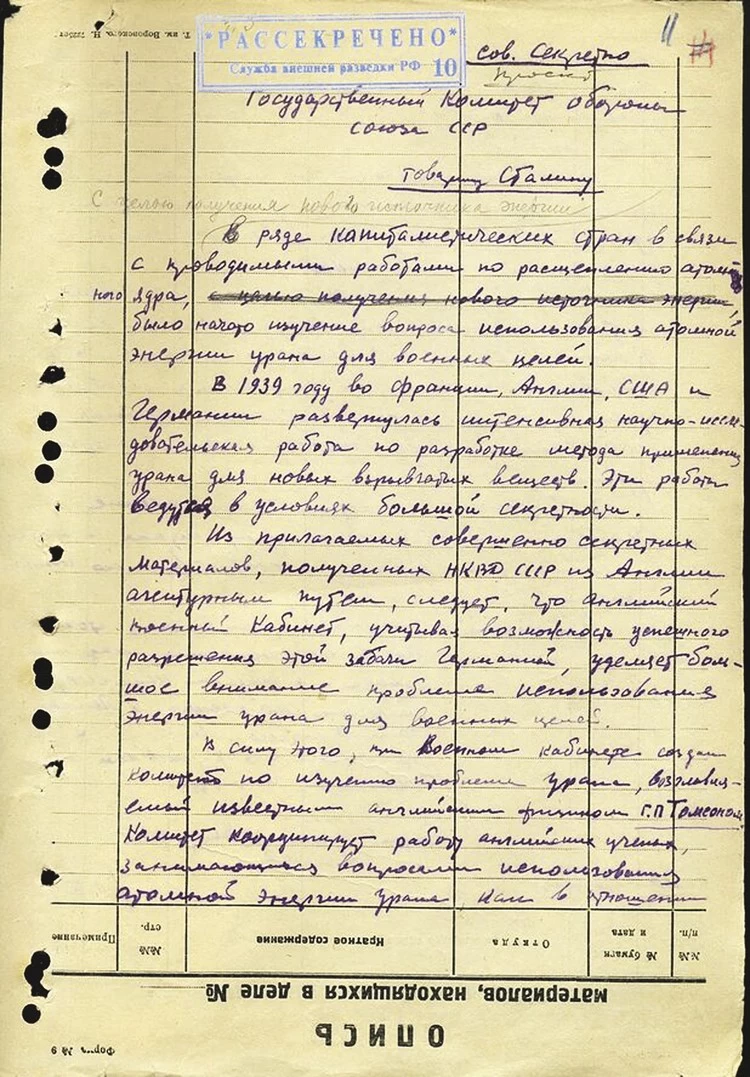 Т. им. Воровского. Н.
*РАССЕКРЕЧЕНО*
Служба внешней разведки РФ 10
11
сов. Секретно
проект
Государственный Комитет обороны
союза ССР
товарищу Сталину
С целью получения нового источника энергии
В ряде капиталистических стран в связи
с проводимыми работами по расщеплению атом-
ного ядра, с целью получения нового источника энергии,
было начато изучение вопроса использования атомной
энергии урана для военных целей.
В 1939 году во Франции, Англии, США и
Германии развернулась интенсивная научно-иссле-
довательская работа по разработке метода применения
урана для новых взрывчатых веществ. Эти работы
ведутся в условиях большой секретности.
Из прилагаемых совершенно секретных
материалов, полученных НКВД СССР из Англии
агентурным путем, следует, что английский
военный Кабинет, учитывая возможность успешного
разрешения этой задачи Германией, уделяет боль-
шое внимание проблеме использования
энергии урана для военных целей.
В силу этого, при Военном кабинете создан
комитет по изучению проблемы урана, возглавля-
емый известным английским физиком Г.П Томсоном.
Комитет координирует работу английских ученых,
занимающихся вопросами использования
атомной энергии урана, как в отношении
Примечание
№№ стр.
Краткое содержание
Откуда
№ бумаги и дата
№№ п/п.
материалов, находящихся в деле №
ОПИСЬ
Форма № 9